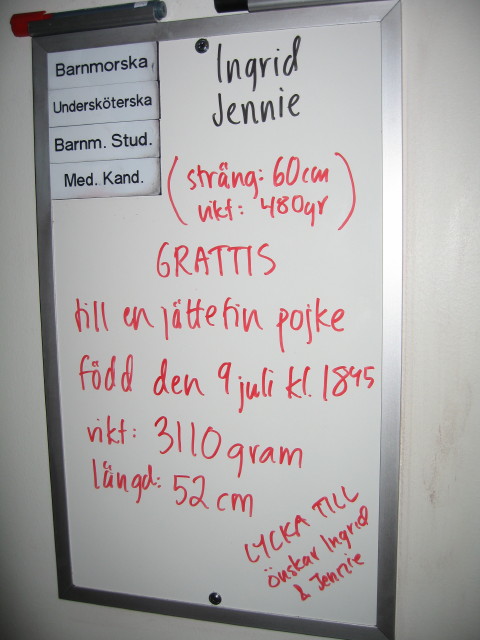 Barnmorska
Ingrid
Undersköterska
Jennie
Barnm. Stud.
Med. Kand.
(sträng: 60cm
vikt: 480gr)
GRATTIS
till en jättefin pojke
född den 9 juli kl. 1845
vikt: 3110 gram
längd: 52 cm
LYCKA TILL
önskar Ingrid
& Jennie